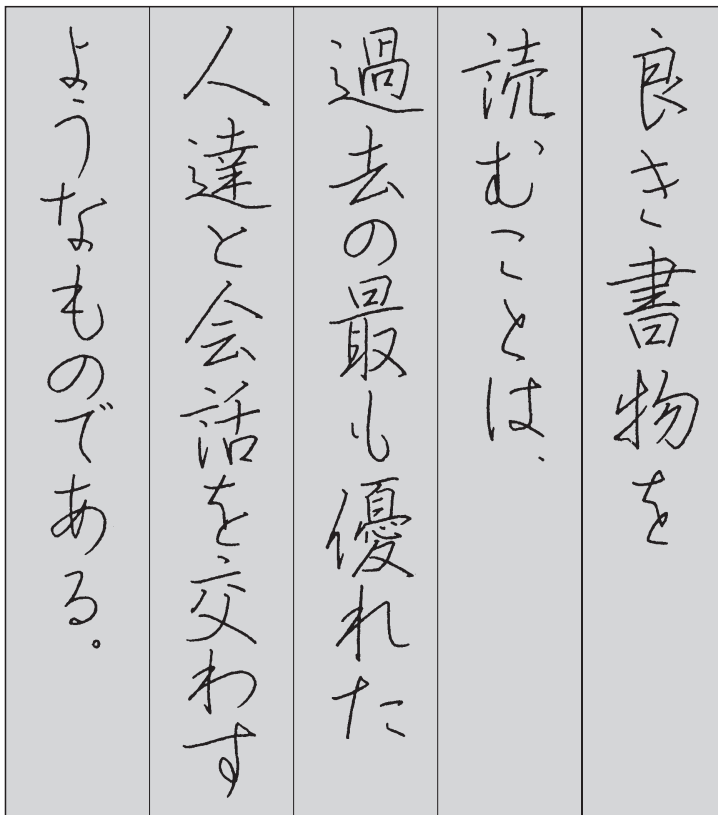 良き書物を
読むことは、
過去の最も優れた
人達と会話を交わす
ようなものである。